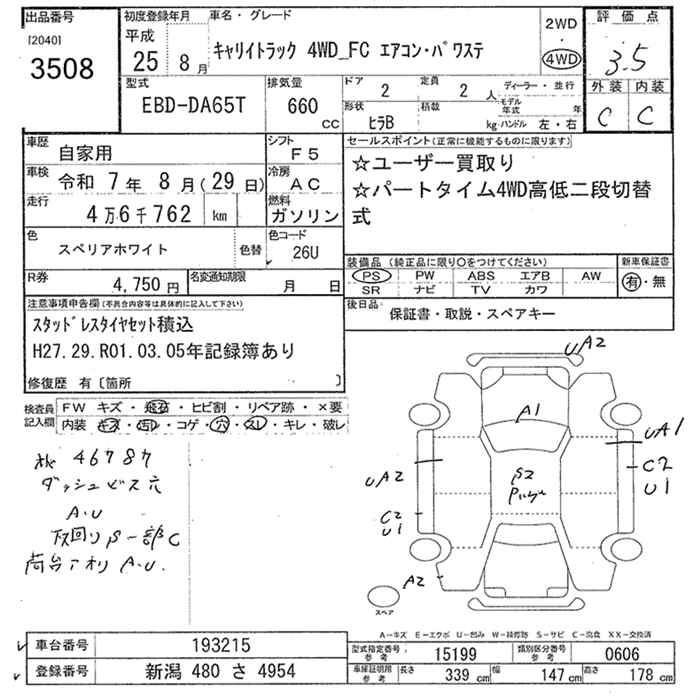 出品番号
[2040]
3508
初度登録年月
平成
25 8月
車名・グレード
キャリイトラック 4WD_FC エアコン・パワステ
2WD
・
4WD
評価点
3.5
外装 内装
C C
型式
EBD-DA65T
排気量
660 cc
ドア 2
定員 2 人
形状 ヒラB
積載 kg
ディーラー・並行
モデル年式 年
ハンドル 左・右
車歴 自家用
シフト F5
車検 令和 7年 8月(29日)
冷房 AC
走行 4万6千762 km
燃料 ガソリン
色 スペリアホワイト 色替
色コード 26U
R券 4,750円
名変通知期限 月 日
セールスポイント(正常に機能するものに限ります)
☆ユーザー買取り
☆パートタイム4WD高低二段切替
式
装備品(純正品に限り○をつけてください)
PS PW ABS エアB AW
SR ナビ TV カワ
新車保証書
有・無
後日品 保証書・取説・スペアキー
注意事項申告欄(不具合内容等は具体的に記入して下さい)
スタッドレスタイヤセット積込
H27.29.R01.03.05年記録簿あり
修復歴 有〔箇所 〕
検査員記入欄
FW キズ・飛石・ヒビ割・リペア跡・×要
内装 キズ・汚レ・コゲ・穴・スレ・キレ・破レ
46787
ダッシュビス穴
A・U
下回りS一部C
荷台アオリ A.U.
UA2
A1
UA1
UA2
C2
U1
S2
C2
U1
A2
スペア
A-キズ E-エクボ U-凹み W-補修跡 S-サビ C-腐食 XX-交換済
車台番号 193215
登録番号 新潟 480 さ 4954
型式指定番号 参考 15199
類別区分番号 参考 0606
車庫証明用 参考 長さ 339 cm 幅 147 cm 高さ 178 cm